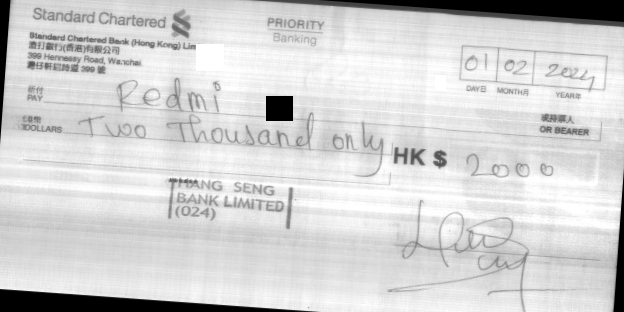 Standard Chartered
PRIORITY
Banking
Standard Chartered Bank (Hong Kong) Lim
渣打銀行(香港)有限公司
399 Hennessy Road, Wanchai
灣仔軒尼詩道 399 號
01 02 2024
DAY日 MONTH月 YEAR年
祈付
PAY Redmi
或持票人
OR BEARER
港幣
DOLLARS Two Thousand only
HK $ 2000
HANG SENG
BANK LIMITED
(024)